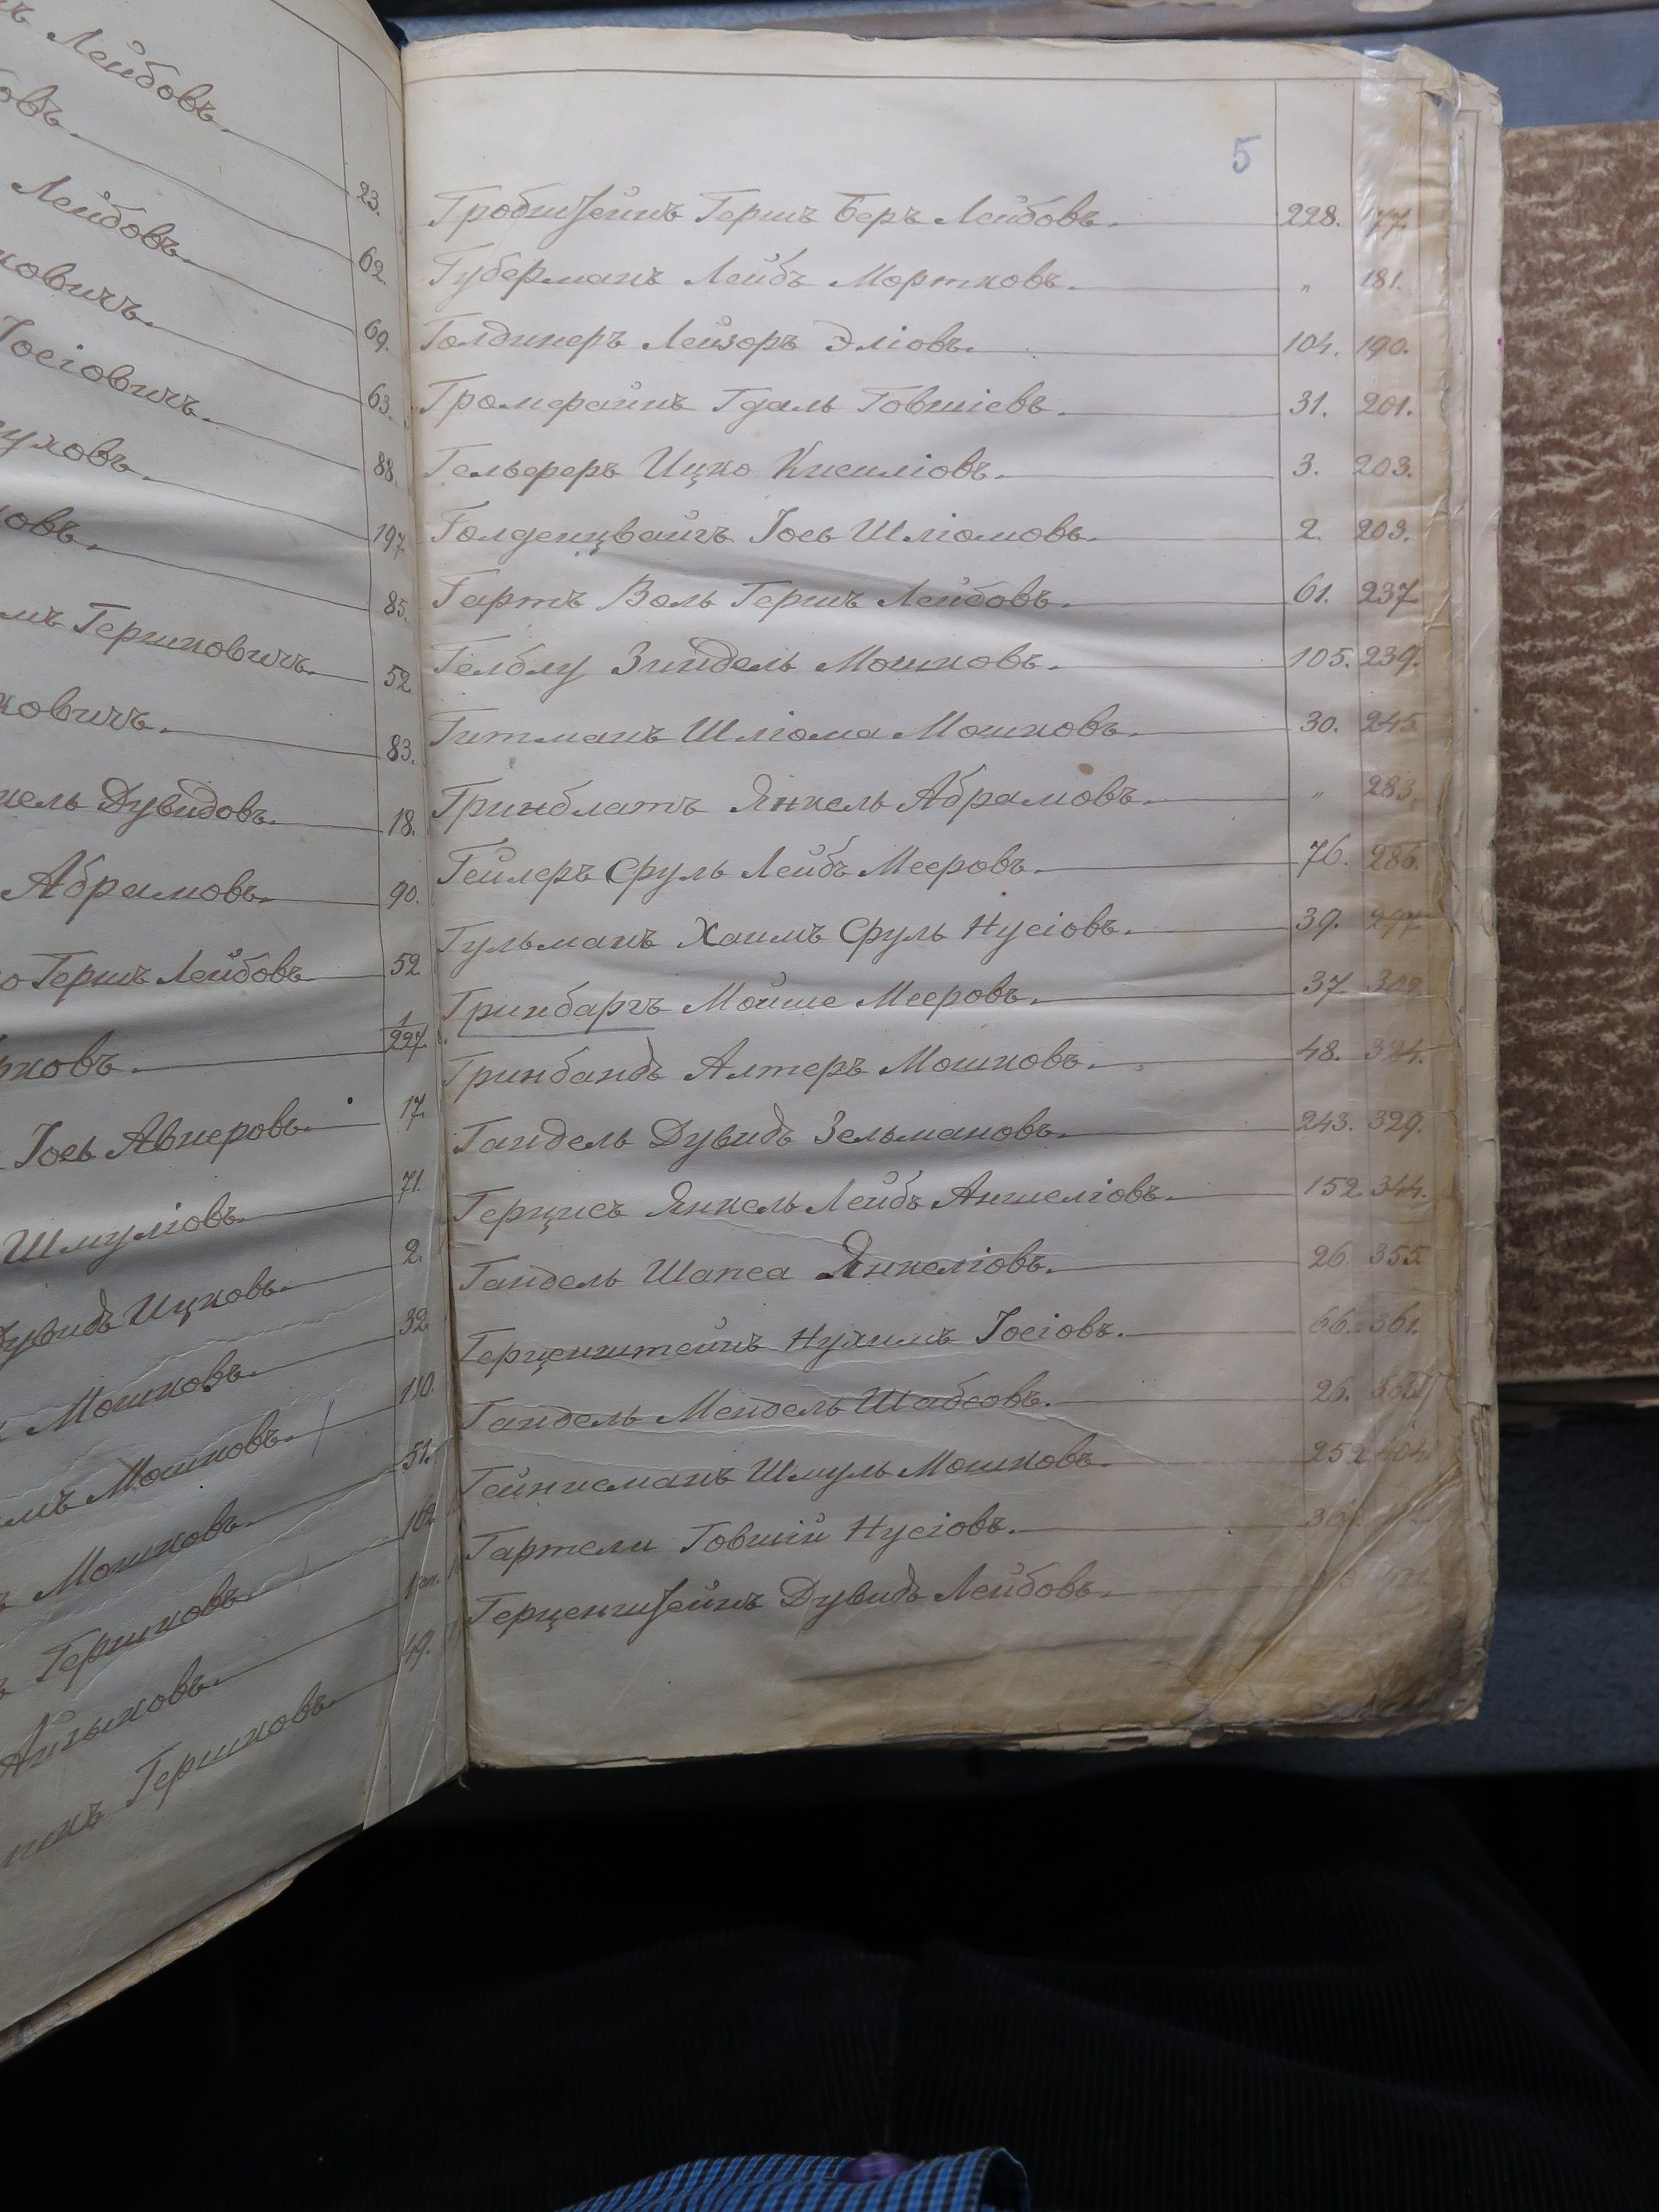 Лейбовъ. 23.
овъ. 62.
Лейбовъ. 69.
ковичъ. 63.
Іосіовичъ. 88.
уловъ. 197.
овъ. 85.
мъ Гершковичъ. 52.
ковичъ. 83.
кель Дувидовъ. 18.
Абрамовъ. 90.
о Гершъ Лейбовъ 52.
ковъ. 1/227.
Іось Авнеровъ. 17.
Шмуліовъ. 71.
Дувидъ Ицковъ. 2.
Мошковъ. 32.
мъ Мошковъ. 110.
Мошковъ. 51.
Гершковъ. 102.
Айзыковъ.
Гершковъ. 49.
5
Гробштейнъ Гершъ Беръ Лейбовъ. 228. 177.
Губерманъ Лейбъ Мортковъ. " 181.
Голдинеръ Лейзоръ Эліовъ. 104. 190.
Громфайнъ Гдаль Говшіевъ. 31. 201.
Гельферъ Ицко Кисиліовъ. 3. 203.
Голденцвайгъ Іось Шліомовъ. 2. 203.
Гартъ Воль Гершъ Лейбовъ. 61. 237.
Гелблу Зиндель Мошковъ. 105. 239.
Гитманъ Шліома Мошковъ. 30. 245.
Гринблатъ Янкель Абрамовъ. " 283.
Гейлеръ Сруль Лейбъ Мееровъ. 76. 286.
Гульманъ Хаимъ Сруль Нусіовъ. 39. 297.
Гринбаргъ Мойше Мееровъ. 37. 309.
Гринбандъ Алтеръ Мошковъ. 48. 324.
Гандель Дувидъ Зельмановъ. 243. 329.
Герцисъ Янкель Лейбъ Аншеліовъ. 152. 344.
Гандель Шапса Янкеліовъ. 26. 355.
Герценштейнъ Нухимъ Іосіовъ. 66. 361.
Гандель Мендель Шабсовъ. 26.
Гейнисманъ Шмуль Мошковъ. 252. 404.
Гартели Говшій Нусіовъ.
Герценштейнъ Дувидъ Лейбовъ.